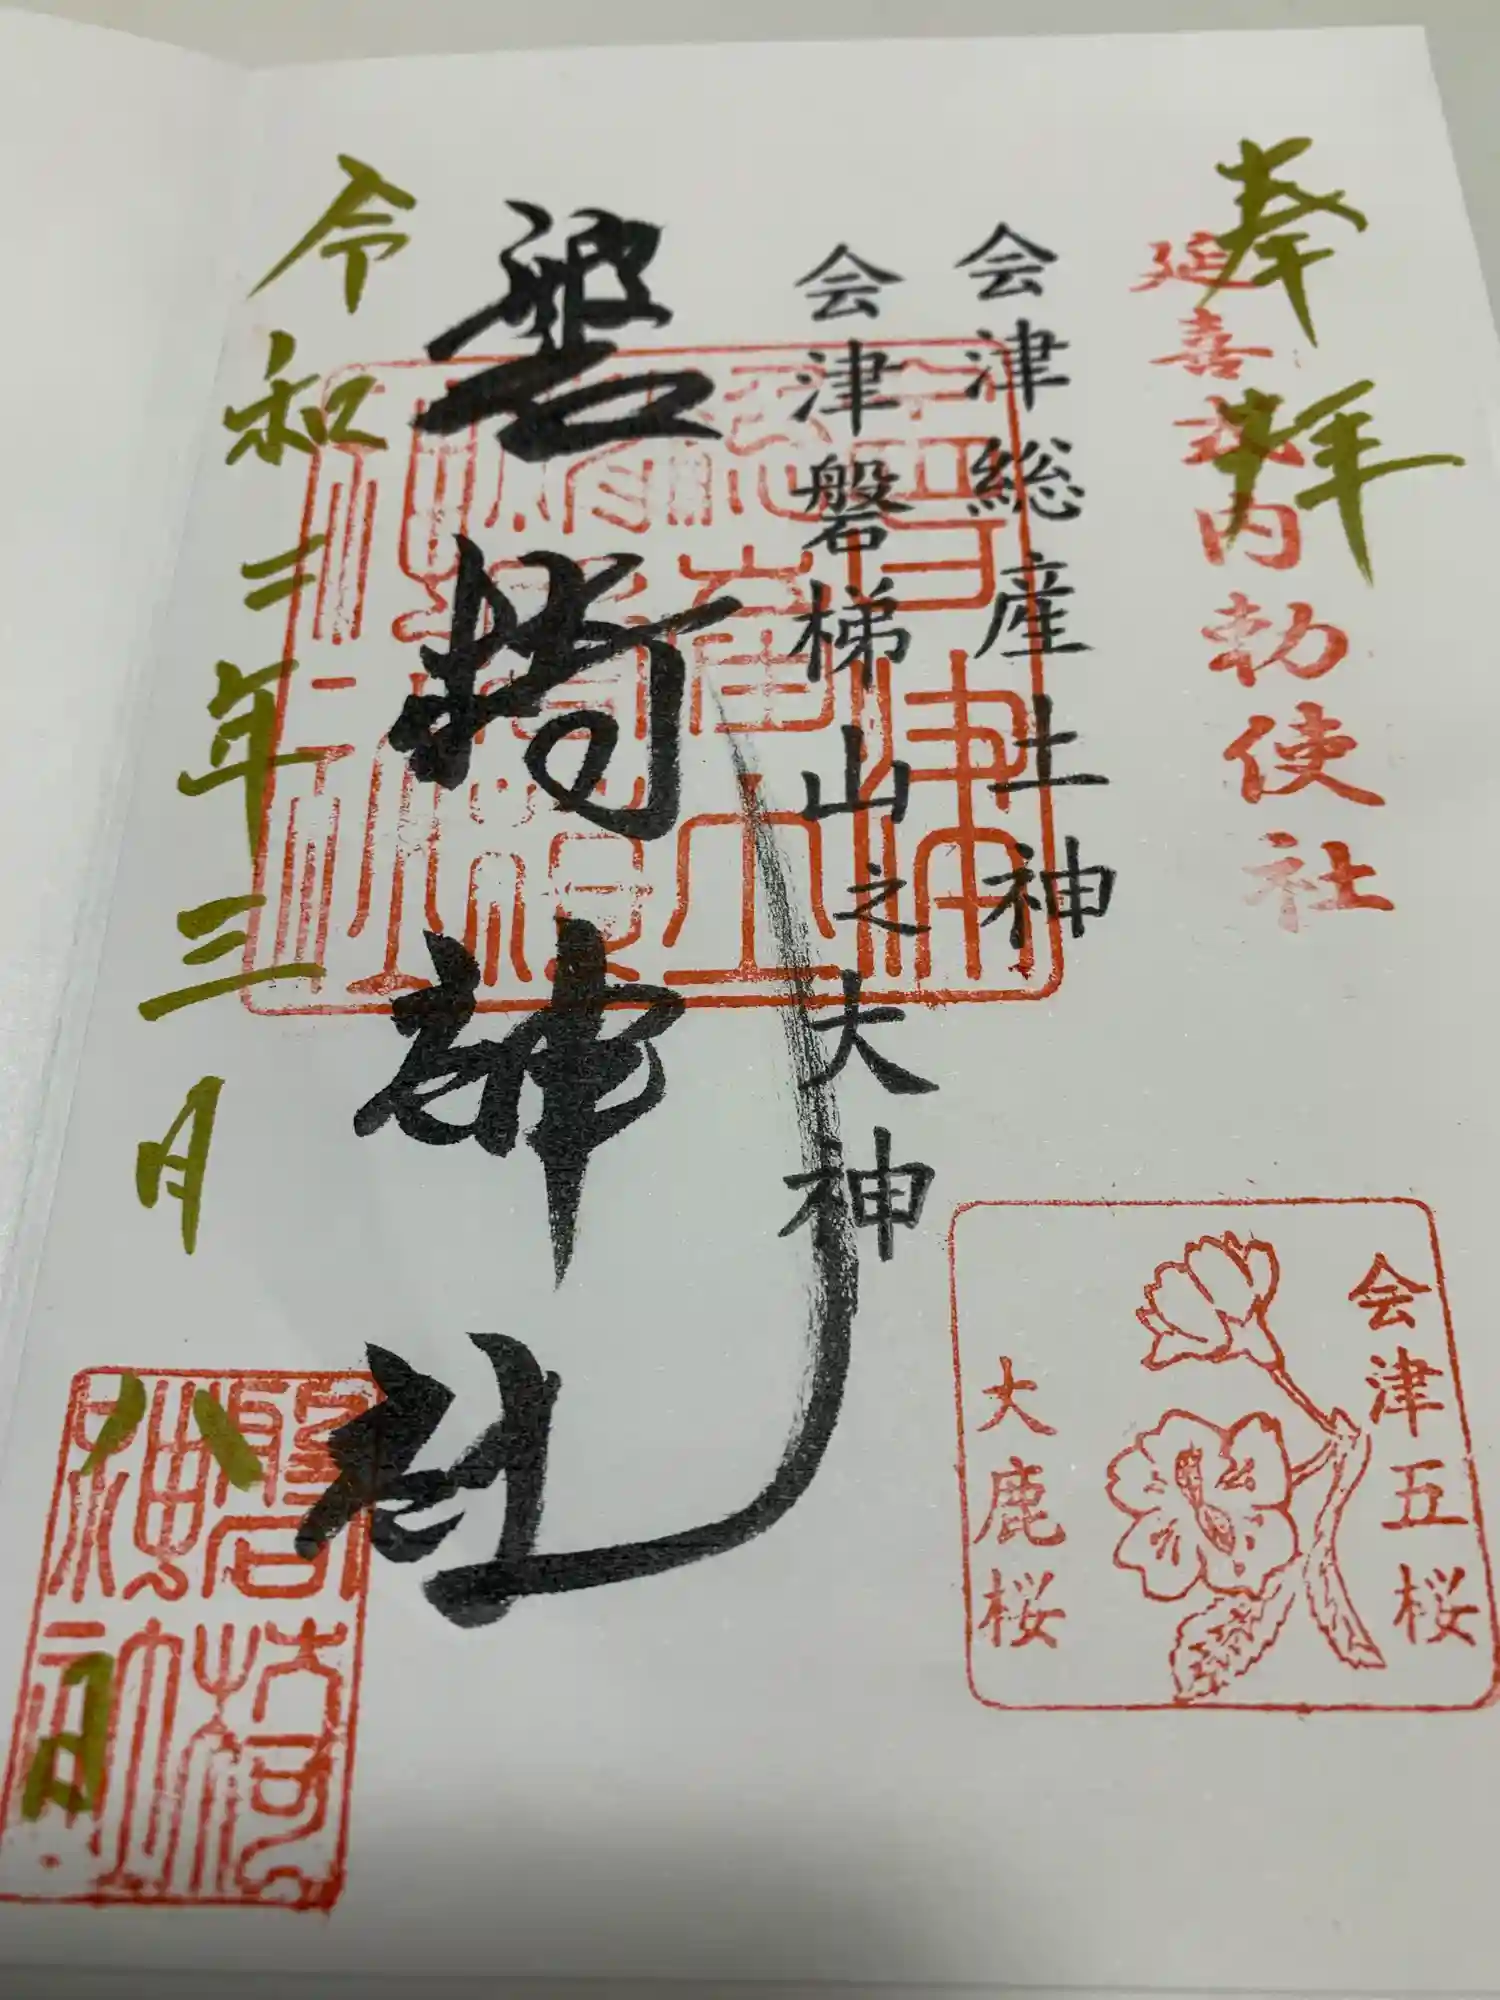 奉拝
延喜式内勅使社
会津総産土神
会津磐梯山之大神
磐椅神社
令和二年三月八日
会津五桜
大鹿桜
磐椅
神社